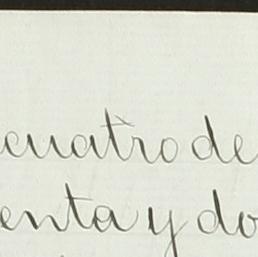 cuatro de
enta y do